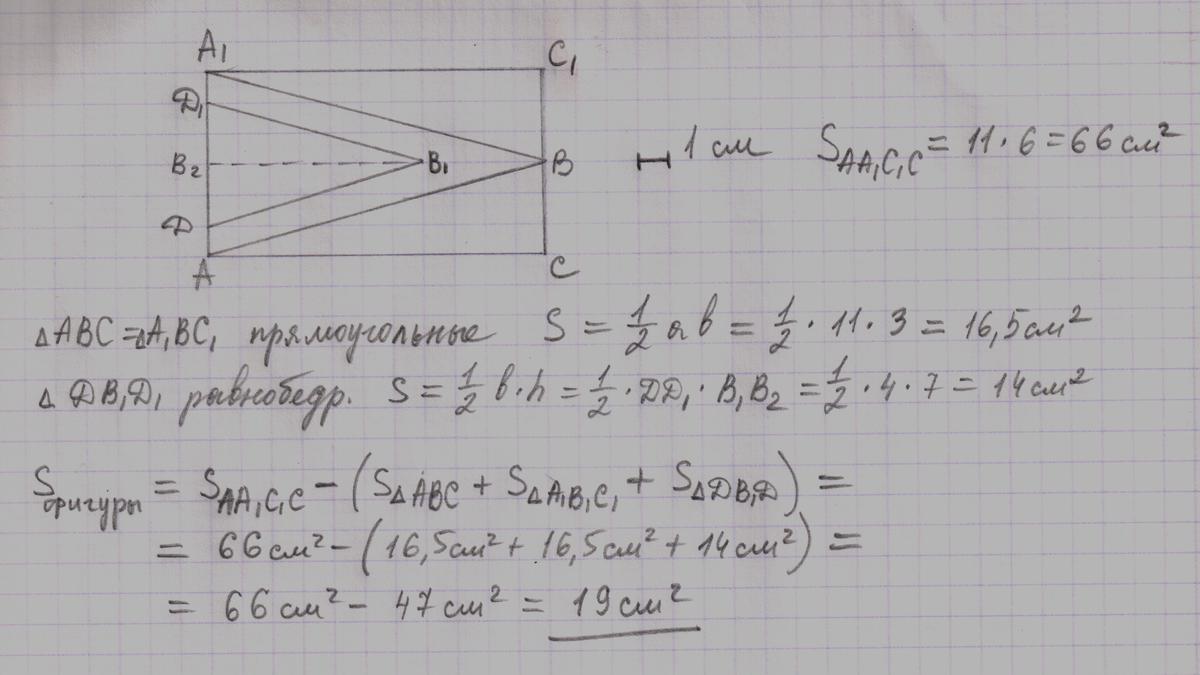 A₁
C₁
Д₁
B₂
B₁
B
Д
A
C
1 см
S AA₁C₁C = 11 · 6 = 66 см²
△ABC = △A₁BC₁ прямоугольные S = 1/2 a b = 1/2 · 11 · 3 = 16,5 см²
△ ДB₁Д₁ равнобедр. S = 1/2 b · h = 1/2 · ДД₁ · B₁B₂ = 1/2 · 4 · 7 = 14 см²
S фигуры = S AA₁C₁C − (S △ABC + S △A₁B₁C₁ + S △ДB₁Д) =
= 66 см² − (16,5 см² + 16,5 см² + 14 см²) =
= 66 см² − 47 см² = 19 см²